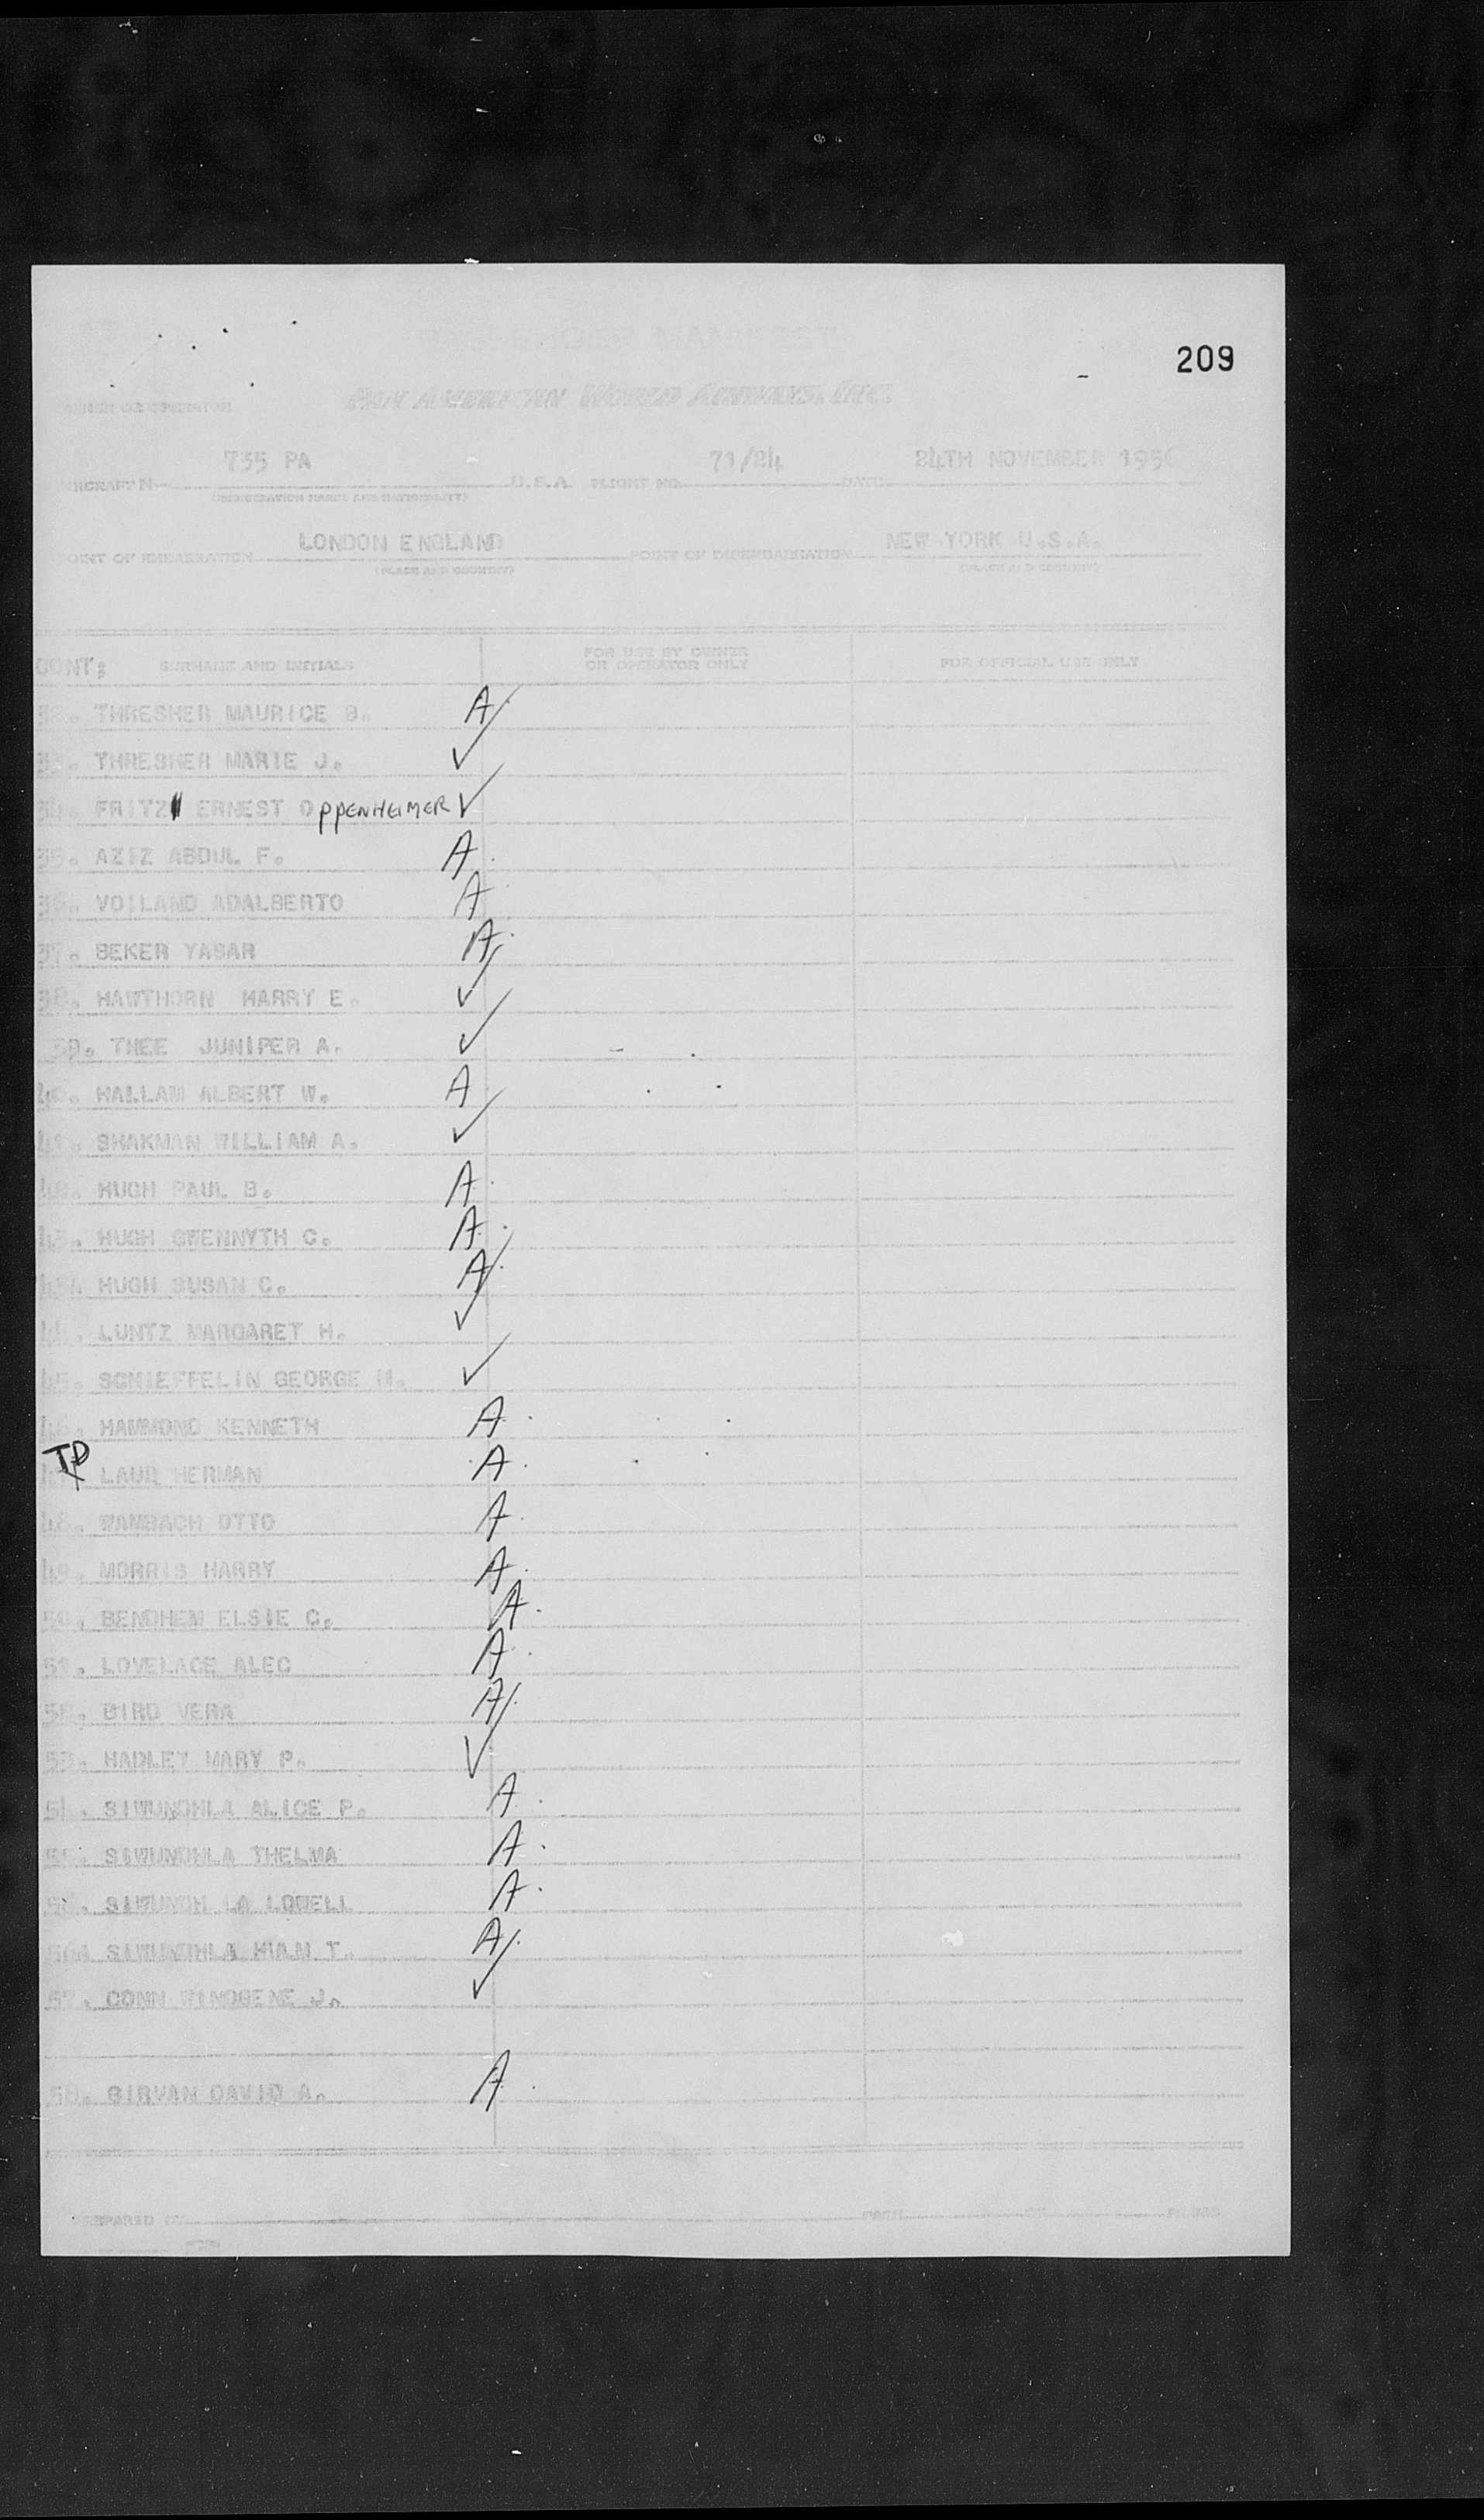 PASSENGER MANIFEST
209
OWNER OR OPERATOR PAN AMERICAN WORLD AIRWAYS, INC.
AIRCRAFT N 735 PA U.S.A. FLIGHT NO. 71/24 DATE 24TH NOVEMBER 1956
(REGISTRATION MARKS AND NATIONALITY)
POINT OF EMBARKATION LONDON ENGLAND POINT OF DISEMBARKATION NEW YORK U.S.A.
(PLACE AND COUNTRY) (PLACE AND COUNTRY)
CONT; SURNAME AND INITIALS FOR USE BY OWNER OR OPERATOR ONLY FOR OFFICIAL USE ONLY
32. THRESHER MAURICE B. A
33. THRESHER MARIE J. ✓
34. FRITZ ERNEST OPPENHEIMER ✓
35. AZIZ ABDUL F. A
36. VOILAND ADALBERTO A
37. BEKER YASAR A
38. HAWTHORN HARRY E. ✓
39. THEE JUNIPER A. ✓
40. HALLAM ALBERT W. A
41. SHAKMAN WILLIAM A. ✓
42. HUGH PAUL B. A
43. HUGH GWENNYTH C. A
43A HUGH SUSAN C. A
44. LUNTZ MARGARET H. ✓
45. SCHIEFFELIN GEORGE ✓
46. HAMMOND KENNETH A
TD LAUR HERMAN A
48. WAMBACH OTTO A
49. MORRIS HARRY A
50. BENDHEM ELSIE C. A
51. LOVELACE ALEC A
52. BIRD VERA A
53. HADLEY MARY P. ✓
54. SIWUNDHLA ALICE P. A
55. SIWUNDHLA THELMA A
56. SIWUNDH LA LOWELL A
56A SIWUNDHLA T. A
57. CONN WINOGENE J. ✓
58. GIRVAN DAVID A. A
PREPARED BY PAGE OF